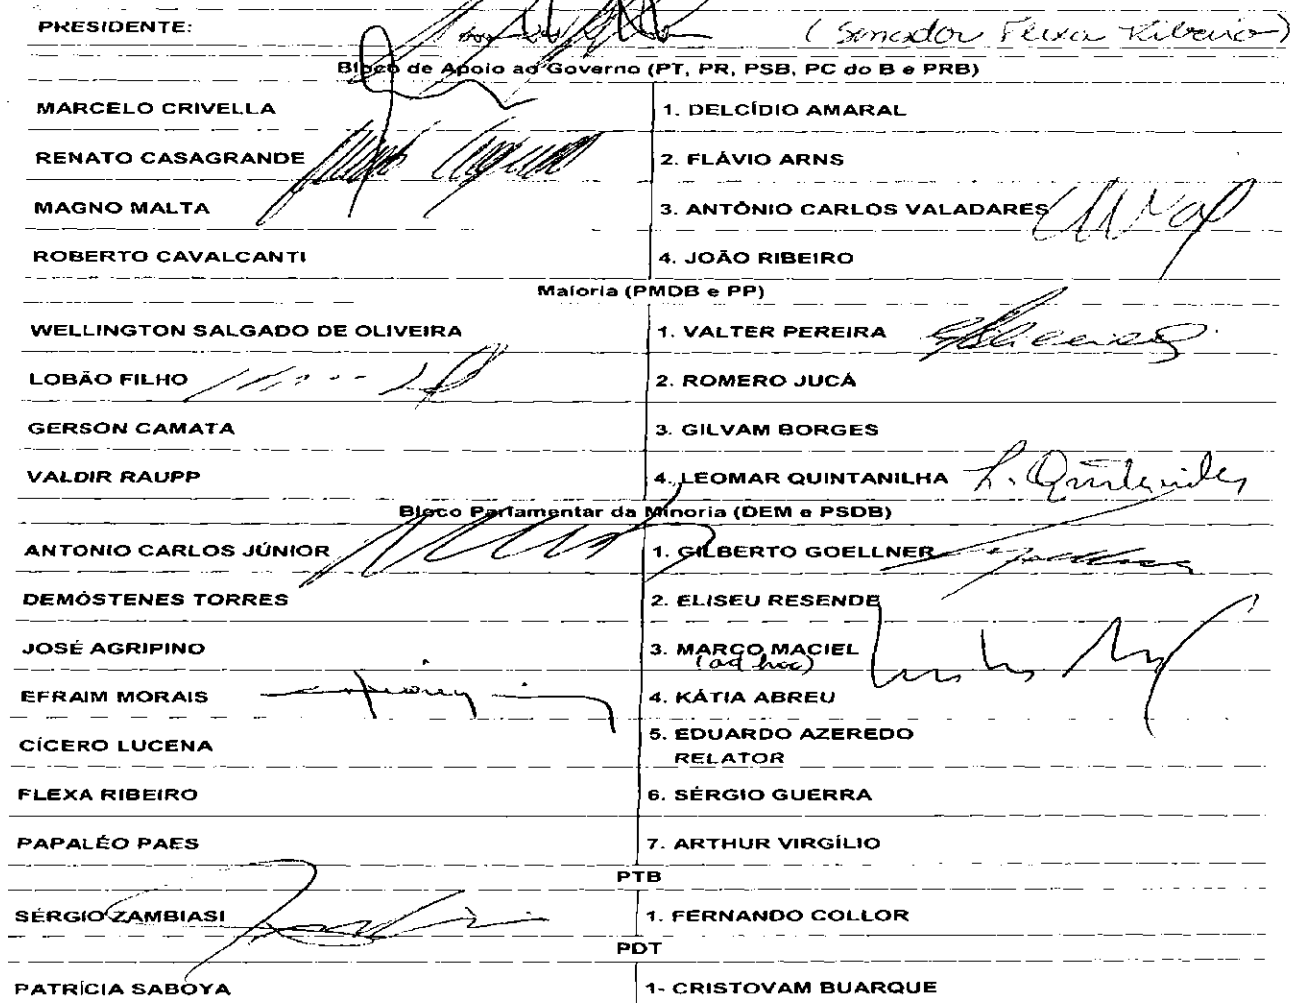 PRESIDENTE: (Senador Flexa Ribeiro)
Bloco de Apoio ao Governo (PT, PR, PSB, PC do B e PRB)
MARCELO CRIVELLA 1. DELCÍDIO AMARAL
RENATO CASAGRANDE 2. FLÁVIO ARNS
MAGNO MALTA 3. ANTÔNIO CARLOS VALADARES
ROBERTO CAVALCANTI 4. JOÃO RIBEIRO
Maioria (PMDB e PP)
WELLINGTON SALGADO DE OLIVEIRA 1. VALTER PEREIRA
LOBÃO FILHO 2. ROMERO JUCÁ
GERSON CAMATA 3. GILVAM BORGES
VALDIR RAUPP 4. LEOMAR QUINTANILHA L. Quintanilha
Bloco Parlamentar da Minoria (DEM e PSDB)
ANTONIO CARLOS JÚNIOR 1. GILBERTO GOELLNER
DEMÓSTENES TORRES 2. ELISEU RESENDE
JOSÉ AGRIPINO 3. MARCO MACIEL
(ad hoc)
EFRAIM MORAIS 4. KÁTIA ABREU
CÍCERO LUCENA 5. EDUARDO AZEREDO
RELATOR
FLEXA RIBEIRO 6. SÉRGIO GUERRA
PAPALÉO PAES 7. ARTHUR VIRGÍLIO
PTB
SÉRGIO ZAMBIASI 1. FERNANDO COLLOR
PDT
PATRÍCIA SABOYA 1- CRISTOVAM BUARQUE